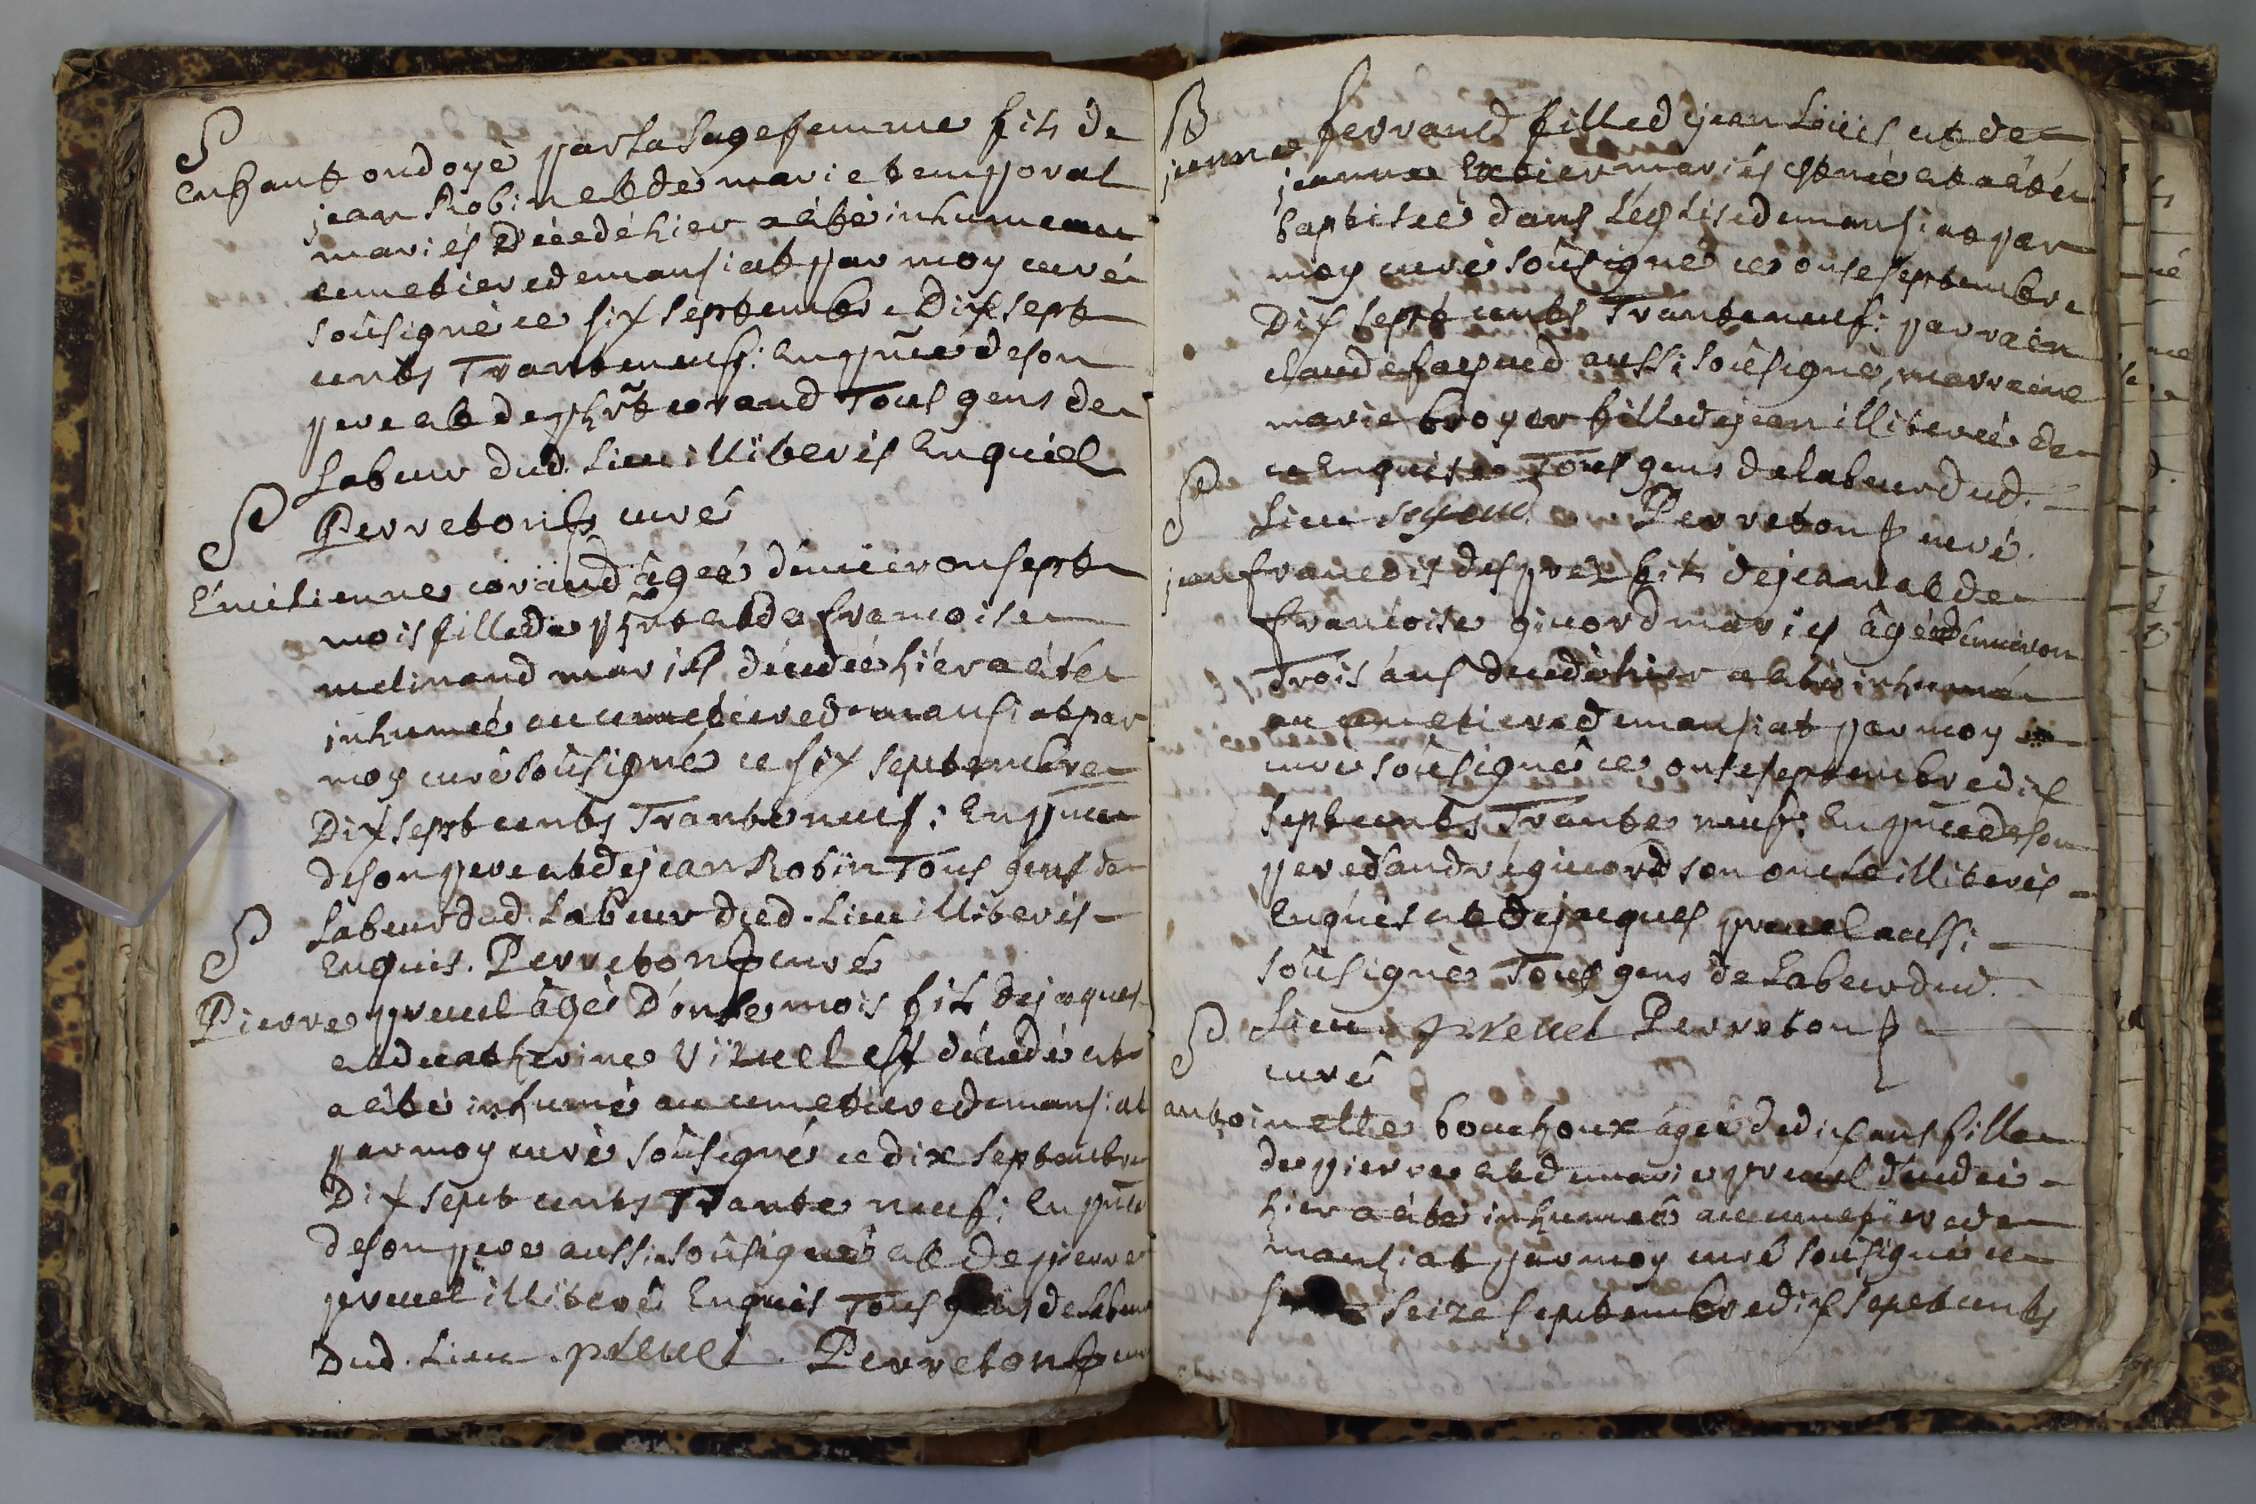 S
enfant ondoyé par la sagefemme fils de
jean Robin et de marie temporal
mariés décedé hier a été inhumé au
cemetiere de mansiat par moy curé
soûsigné ce six septembre Dix sept
cents Trante neuf: En pñce de son
pere et de phrt corand Tous gens de
Labeur dud. Lieu illiterés Enquiel
Perreton curé
S
Emelienne corand âgeé d'environ sept
mois fille de phrt et de francoise
melinand mariés décedeé hier a été
inhumeé au cemetiere de mansiat par
moy curé soûsigné ce six septembre
Dix sept cents Trante neuf: En pñce
de son pere et de jean Robin Tous gens de
Labeur dud. Labeur dud. Lieu illiterés
Enquis. Perreton curé
S
Pierre preuel âgé d'onse mois fils de jaques
et de catherine Viruel est décedé et
a été inhumé au cemetiere de mansiat
par moy curé soûsigné ce dix septembre
Dix sept cents Trante neuf: En pñce
de son pere aussi soûsigné et de pierre
preuel illiteré Enquis Tous gens de Labeur
Dud. Lieu. preuel. Perreton cu
B
jeanne ferrand fille de jean Louis et de
jeanne mariés est neé et a été
baptiseé dans L'eglise de mansiat par
moy curé soûsigné ce onse septembre
Dix sept cents Trante neuf: parrain
claude aussi soûsigné, marraine
marie broyer fille de jean illitereé de
ce Enquise Tous gens de labeur dud.
Lieu Perreton curé.
S
jean francois desprez fils de jean et de
francoise giuord mariés âgé d'environ
Trois ans decedé hier a été inhumé
au cemetiere de mansiat par moy
curé soûsigné ce onse septembre dix
sept cents Trante neuf: En pñce de son
pere d'andré giuord son oncle illiterés
Enquis et de jaques preuel aussi
soûsigné Tous gens de Labeur dud.
Lieu. preuel Perreton
curé
S
anthoinette bouchoux âgeé de dix ans fille
de pierre et de marie preuel decedeé
hier a été inhumeé au cemetiere de
manziat par moy curé soûsigné ce
seize septembre dix sept cents